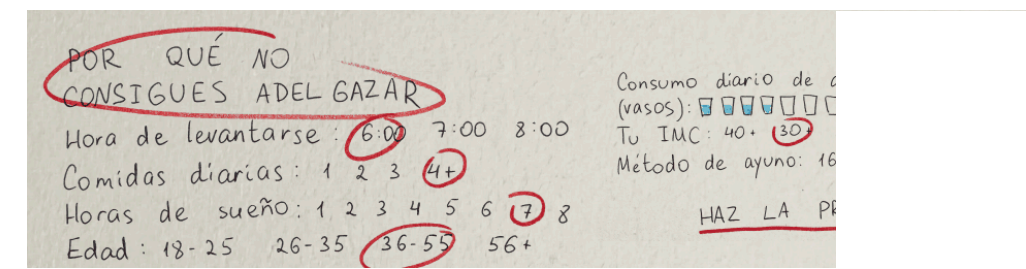 POR QUÉ NO
CONSIGUES ADELGAZAR
Hora de levantarse: 6:00 7:00 8:00
Comidas diarias: 1 2 3 4+
Horas de sueño: 1 2 3 4 5 6 7 8
Edad: 18-25 26-35 36-55 56+
Consumo diario de
(vasos):
Tu IMC: 40+ 30+
Método de ayuno: 16
HAZ LA